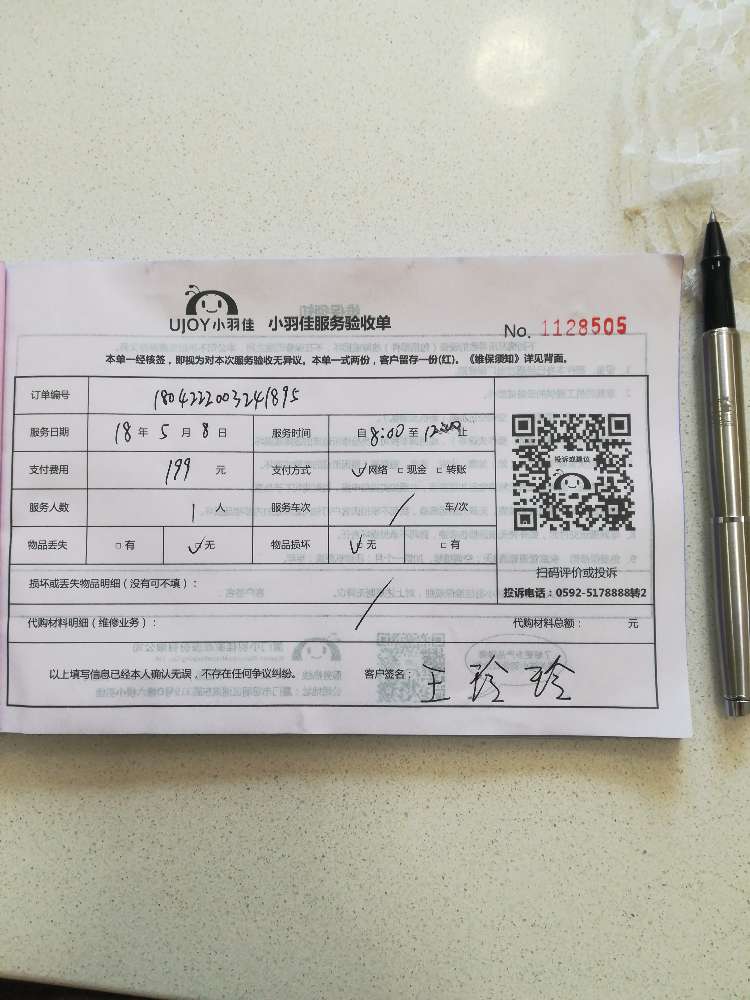 UJOY小羽佳 小羽佳服务验收单
No. 1128505
本单一经核签，即视为对本次服务验收无异议。本单一式两份，客户留存一份(红)。《维保须知》详见背面。
订单编号 1804222003241895
服务日期 18 年 5 月 8 日 服务时间 自 8:00 至 12:00 止
支付费用 199 元 支付方式 ✓网络 □ 现金 □ 转账
服务人数 1 人 服务车次 / 车/次
物品丢失 □ 有 ✓无 物品损坏 ✓无 □ 有
投诉或建议
扫码评价或投诉
投诉电话：0592-5178888转2
损坏或丢失物品明细（没有可不填）： /
代购材料明细（维修业务）： 代购材料总额： 元
以上填写信息已经本人确认无误，不存在任何争议纠纷。 客户签名：王珍珍